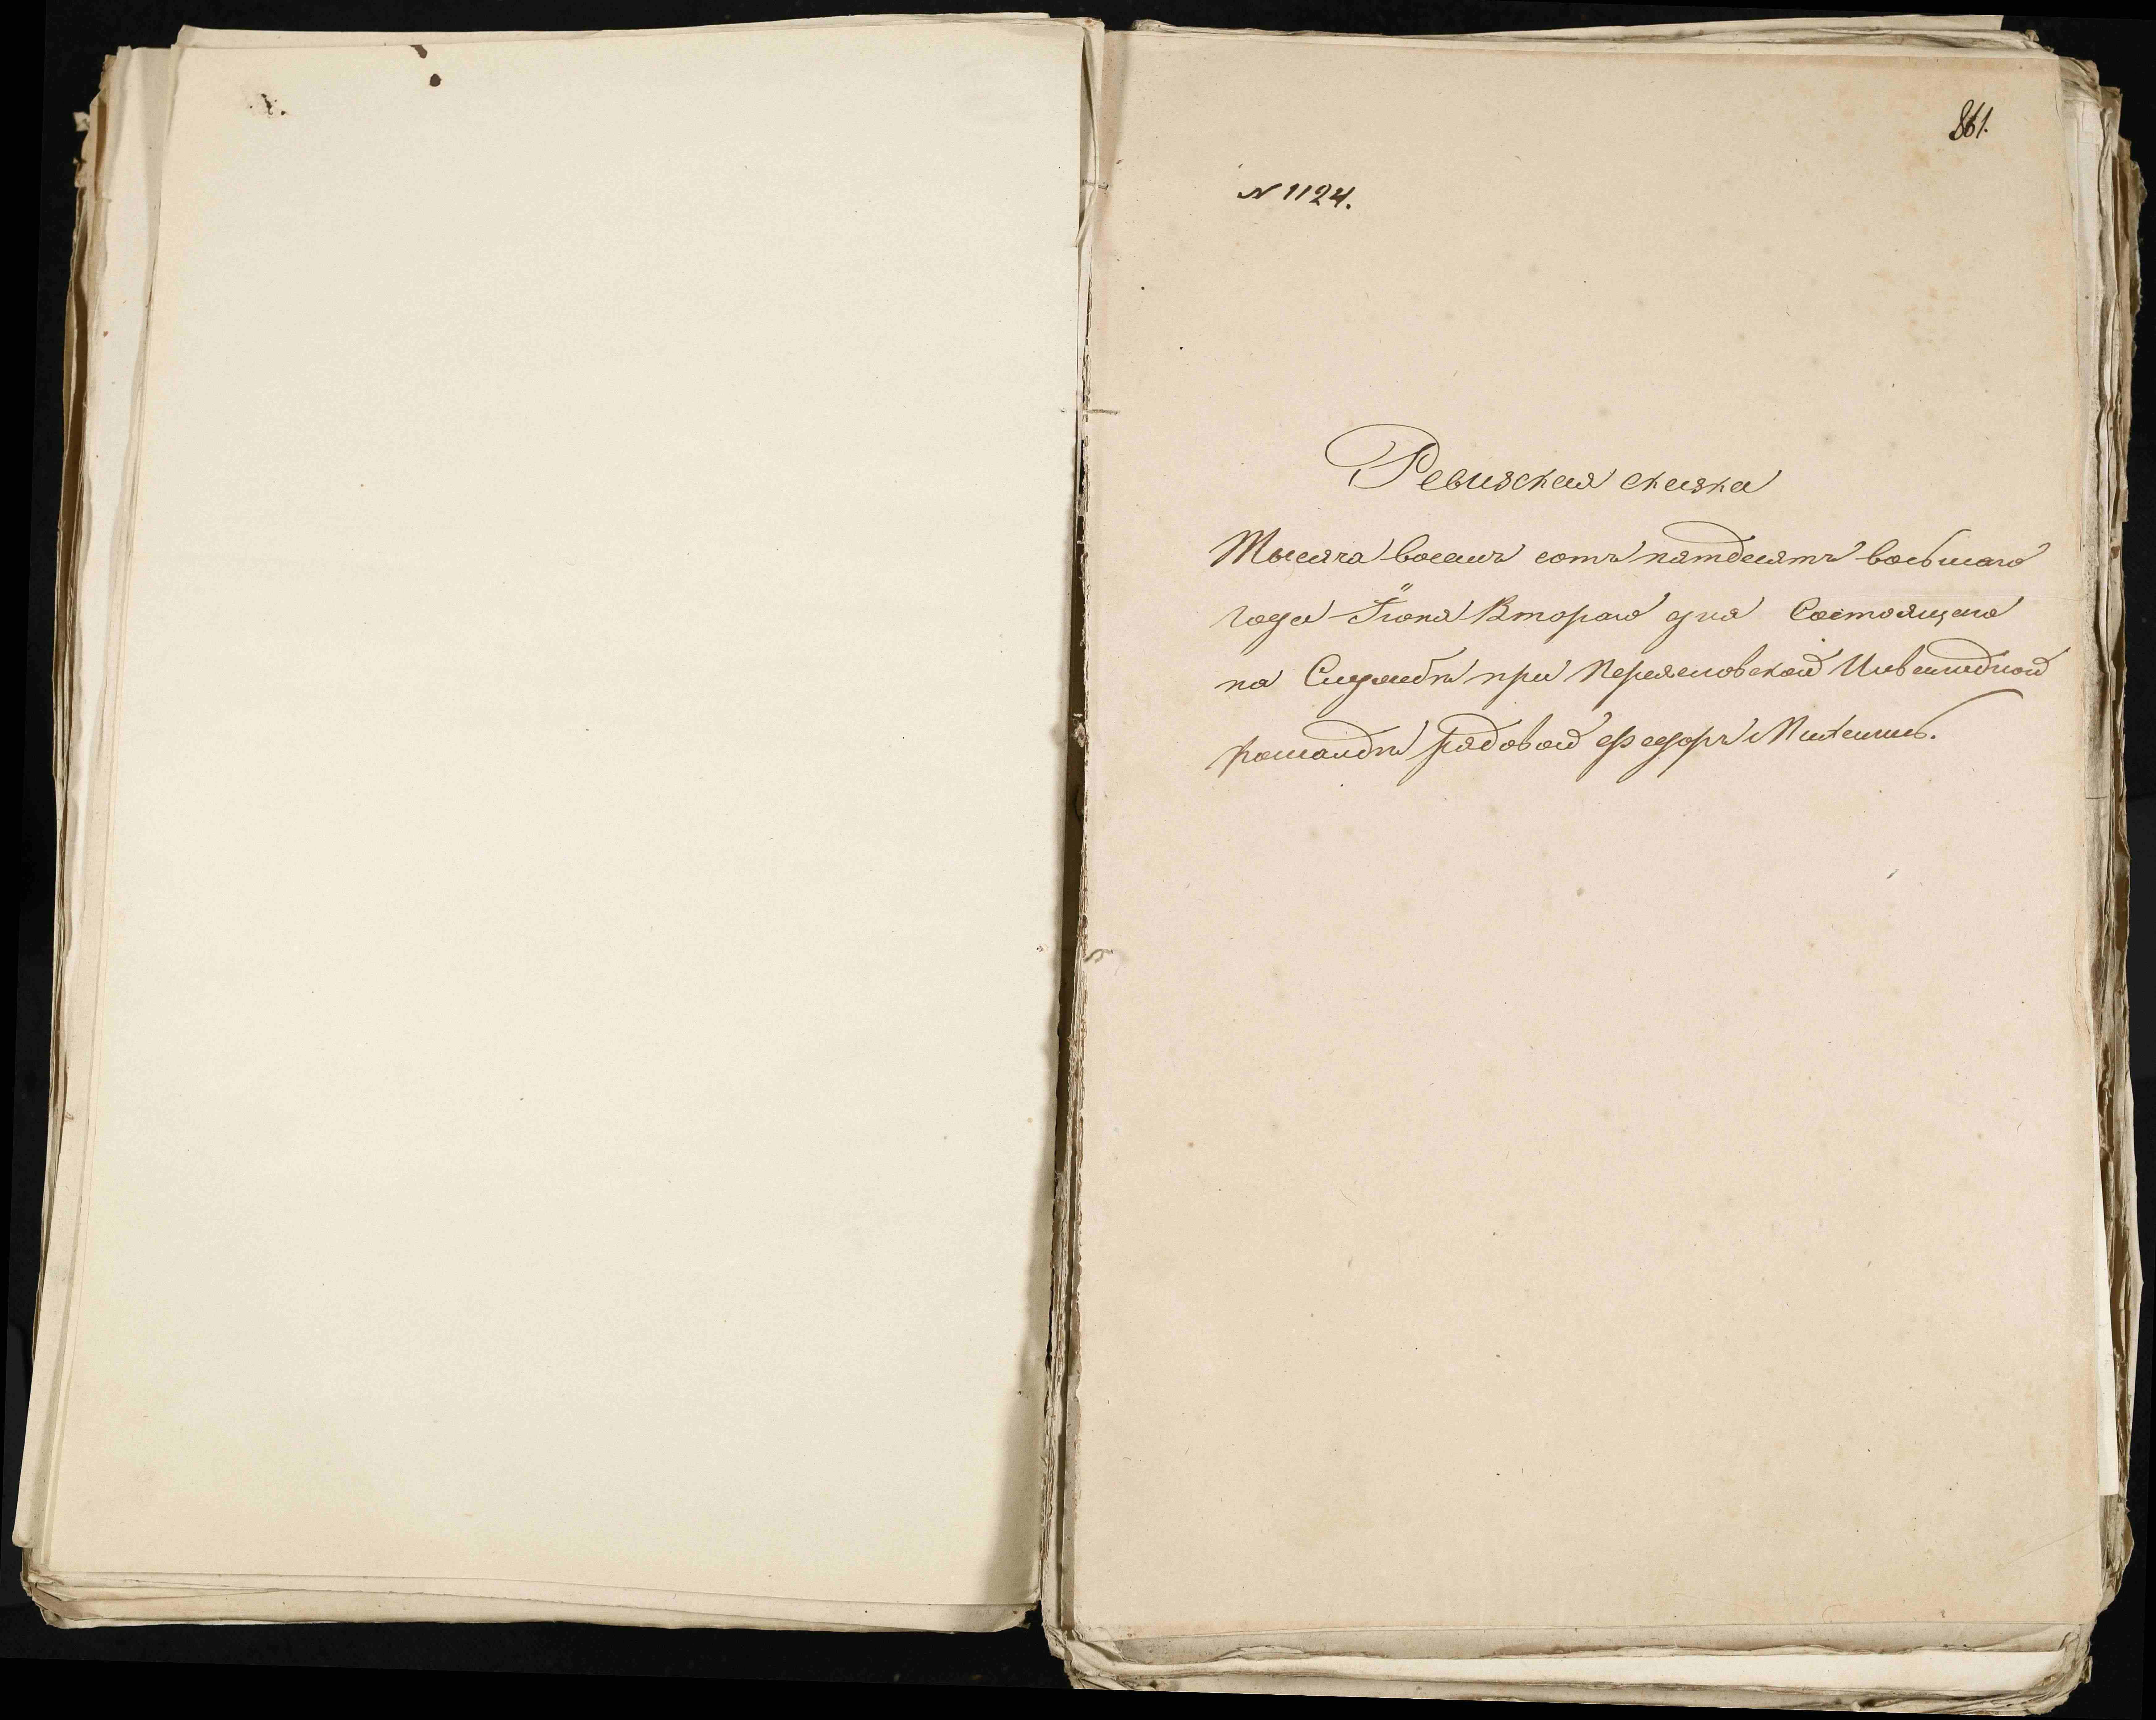 861.
N 1124.
Ревизская сказка
Тысяча восемь сотъ пятдесятъ восьмаго
года Іюня Втораго дня Состоящаго
на Службѣ при Переяславской Инвалидной
командѣ рядовой Федоръ